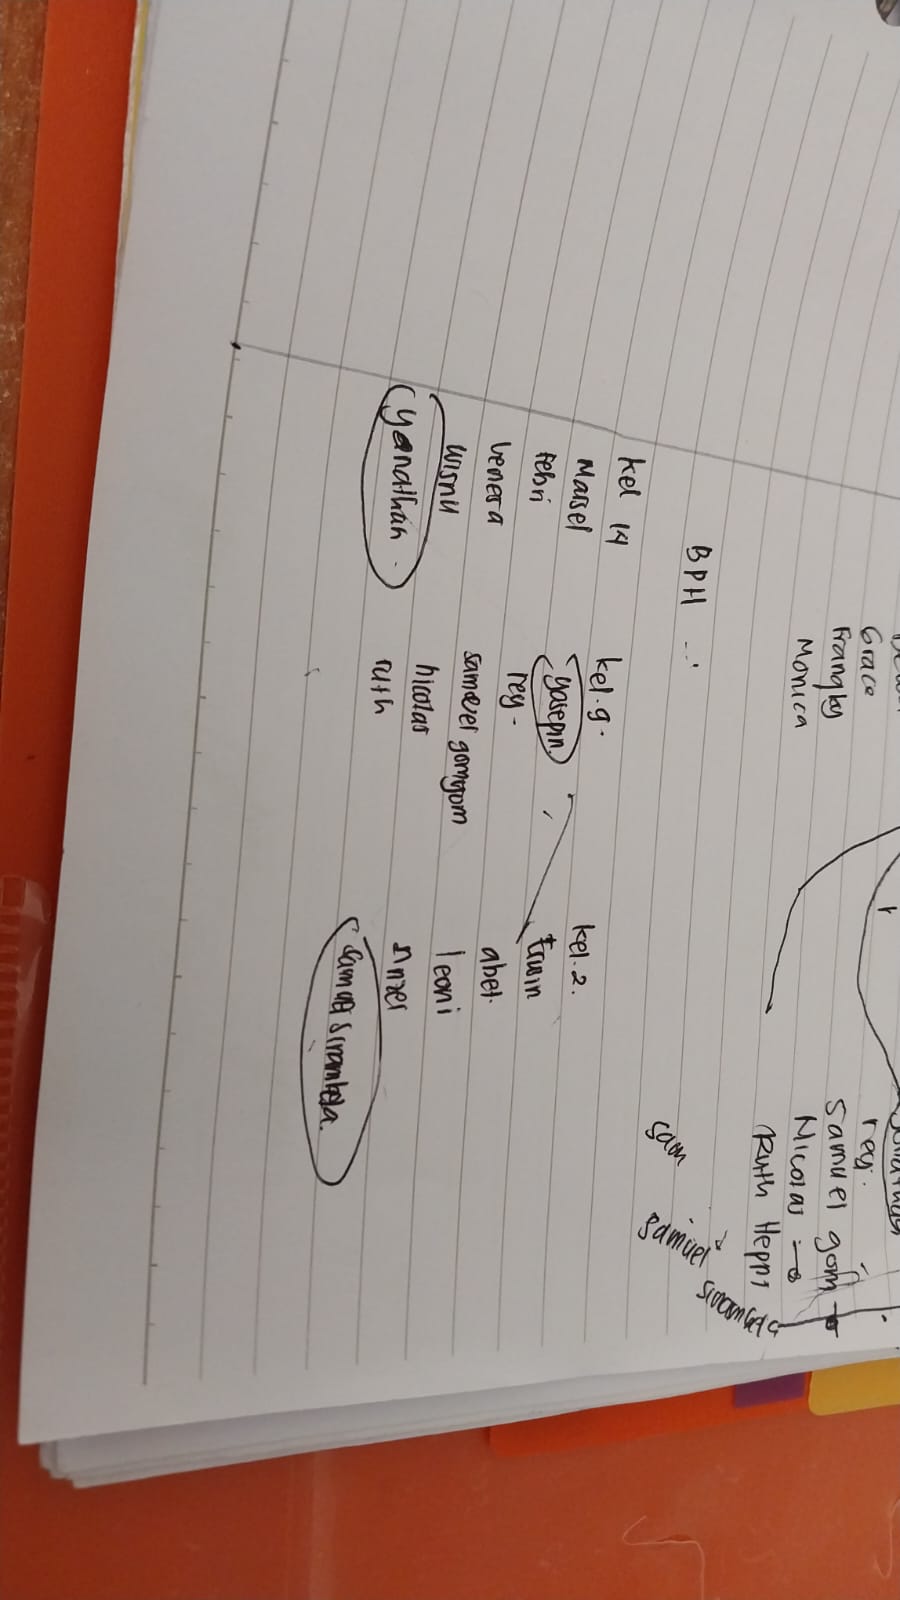 Grace
Frangky
Monica
rey.
Samuel gom
Nicolas
Ruth Heppi
Sam
Samuel
Sinambela
BPH
kel 14
Marsel
Febri
Venesa
wisnu
yonathan
kel.9.
yosepin
rey.
samuel gomgom
nicolas
ruth
kel.2.
Erwin
abel.
leoni
samuel sinambela.